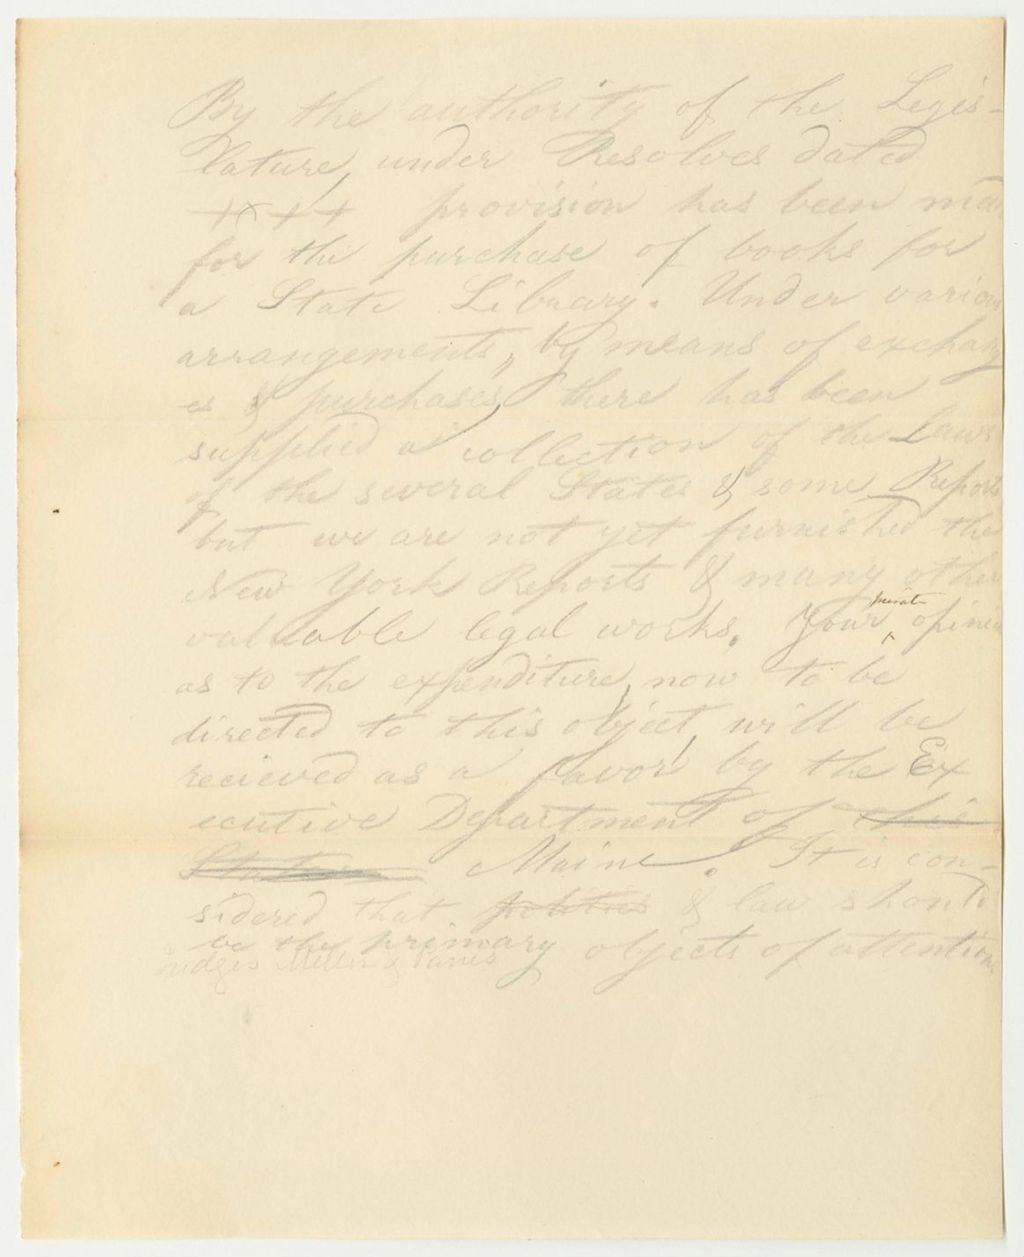 By the authority of the Legis-
lature, under Resolves dated
++++ provision has been ma
for the purchase of books for
a State Library. Under various
arrangements, by means of exchang
es & purchases, there has been
supplied a collection of the Laws
of the several States & some Reports
but we are not yet furnished the
New York Reports & many other
valuable legal works. Your private opinion
as to the expenditure, now to be
directed to this object, will be
recieved as a favor by the Ex
ecutive Department of this
State Maine. It is con-
sidered that politics & law should
be the primary objects of attention
Judges Mellen & Parris